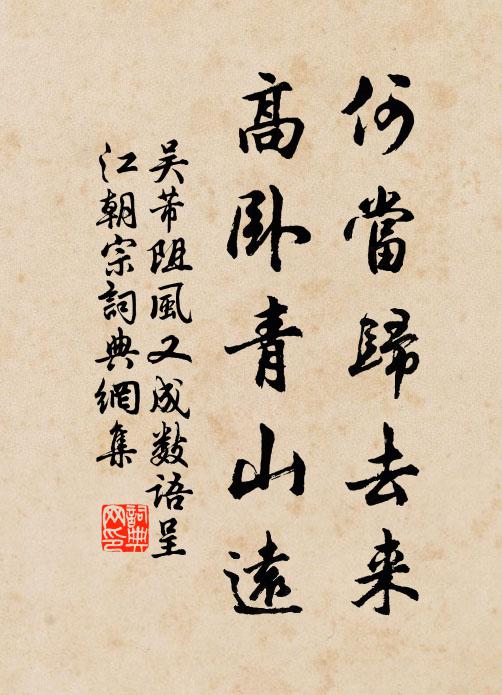 何當歸去来
高卧青山遠
吴芾阻風又成数语呈
江朝宗詞典網集
詞典网印